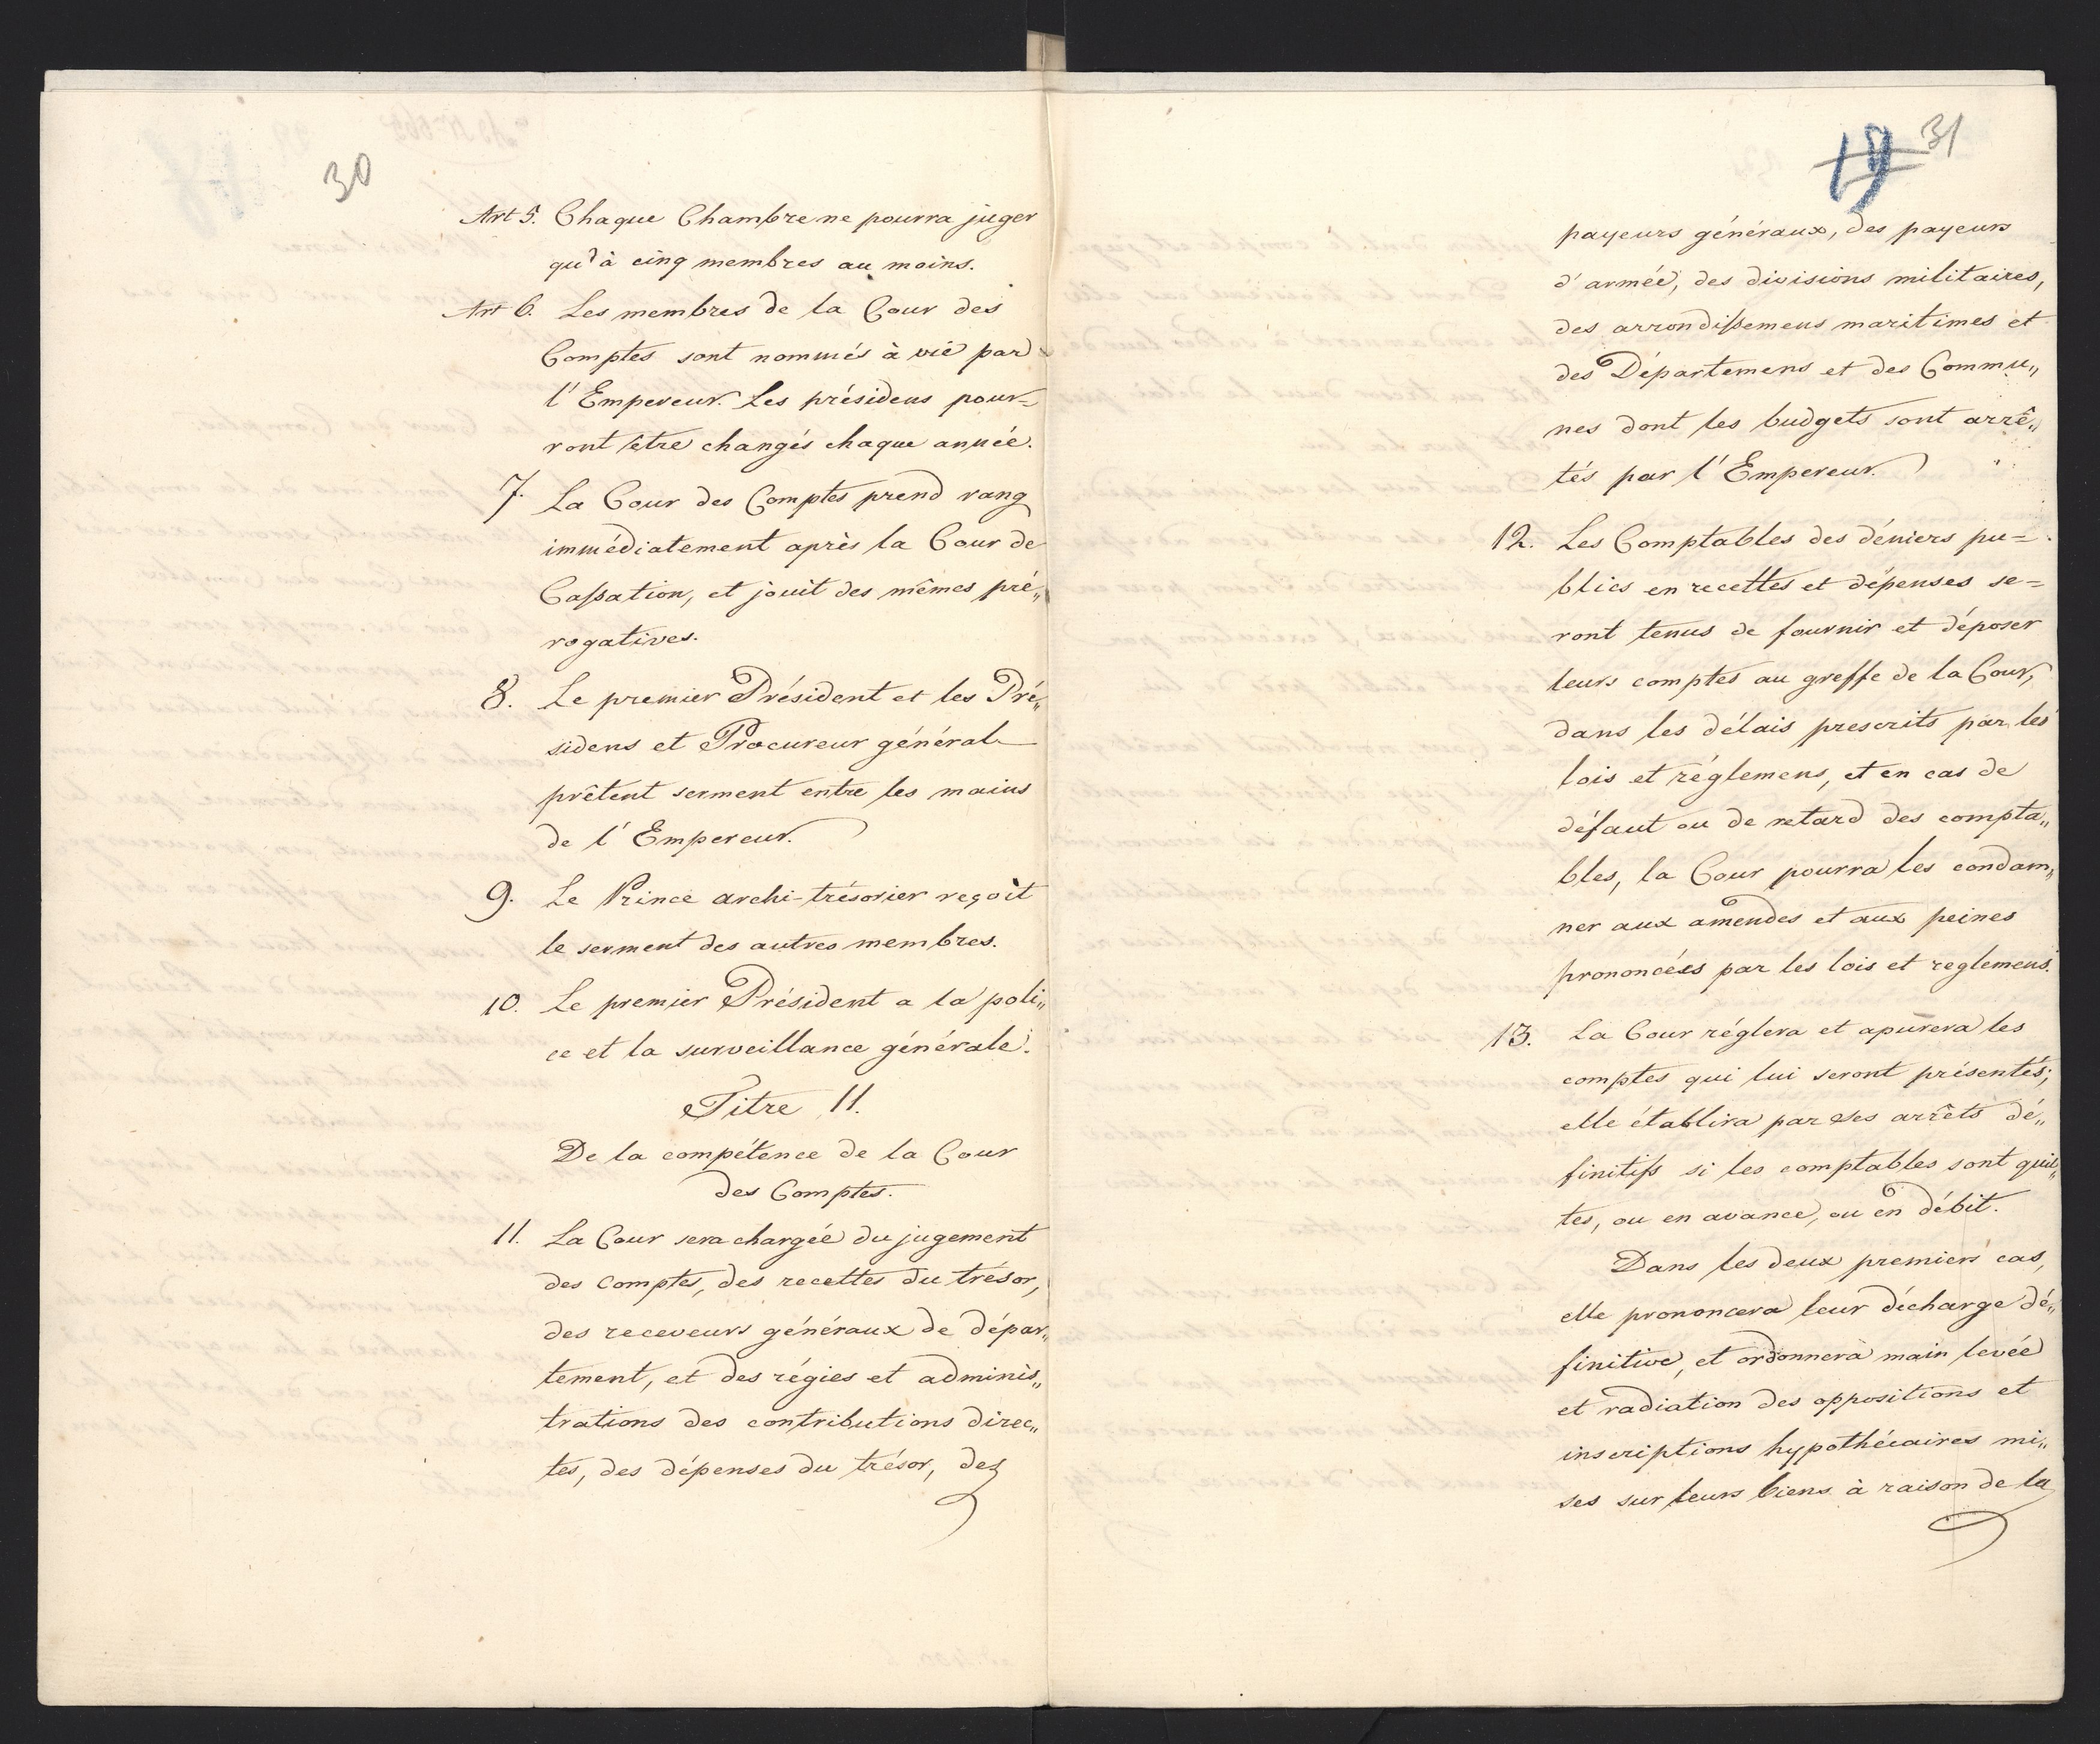 30
Art 5. Chaque Chambre ne pourra juger
qu'à cinq membres au moins.
Art 6. Les membres de la Cour des
Comptes sont nommés à vie par
l'Empereur. Les présidens pour=
ront être changés chaque année.
7. La Cour des Comptes prend rang
immédiatement après la Cour de
Cassation, et jouit des mêmes pré„
rogatives.
8. Le premier Président et les Pré„
sidens et Procureur général
prêtent serment entre les mains
de l'Empereur.
9. Le Prince archi-trésorier reçoit
le serment des autres membres.
10. Le premier Président a la poli„
ce et la surveillance générale.
Titre 11.
De la compétence de la Cour
des Comptes.
11. La Cour sera chargée du jugement
des comptes, des recettes du trésor,
des receveurs généraux de dépar„
tement, et des régies et adminis„
trations des contributions direc„
tes, des dépenses du trésor, des
19 31
payeurs généraux, des payeurs
d'armée, des divisions militaires,
des arrondissemens maritimes et
des Départemens et des Commu„
nes dont les budgets sont arrê„
tés par l'Empereur.
12. Les Comptables des déniers pu=
blics en recettes et dépenses se=
ront tenus de fournir et déposer
leurs comptes au greffe de la Cour,
dans les délais prescrits par les
lois et réglemens, et en cas de
défaut ou de retard des compta„
bles, la Cour pourra les condam„
ner aux amendes et aux peines
prononcées par les lois et reglemens.
13. La Cour réglera et apurera les
comptes qui lui seront présentés;
elle établira par ses arrêts dé„
finitifs si les comptables sont quit„
tes, ou en avance, ou en débit.
Dans les deux premiers cas,
elle prononcera leur décharge dé„
finitive, et ordonnera main levée
et radiation des oppositions et
inscriptions hypothécaires mi„
ses sur leurs biens à raison de la